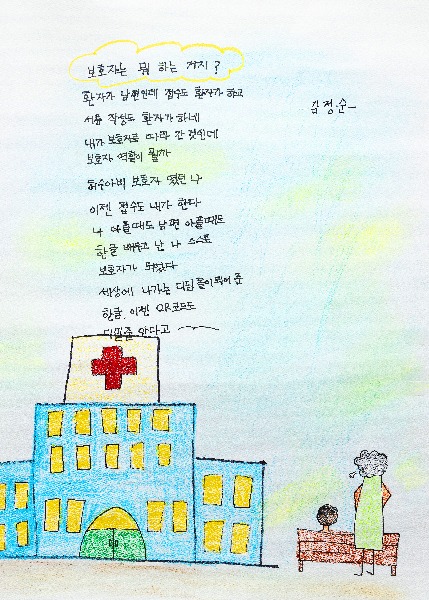 보호자는 뭐 하는 거지?
김정순
환자가 남편인데 접수도 환자가 하고
서류 작성도 환자가 하네
내가 보호자로 따라 간 것인데
보호자 역할이 뭘까
허수아비 보호자 였던 나
이젠 접수도 내가 한다
나 아플때도 남편 아플때도
한글 배우고 난 나 스스로
보호자가 되었다
세상에 나가는 디딤돌이 되어 준
한글, 이젠 QR코드도
안다고